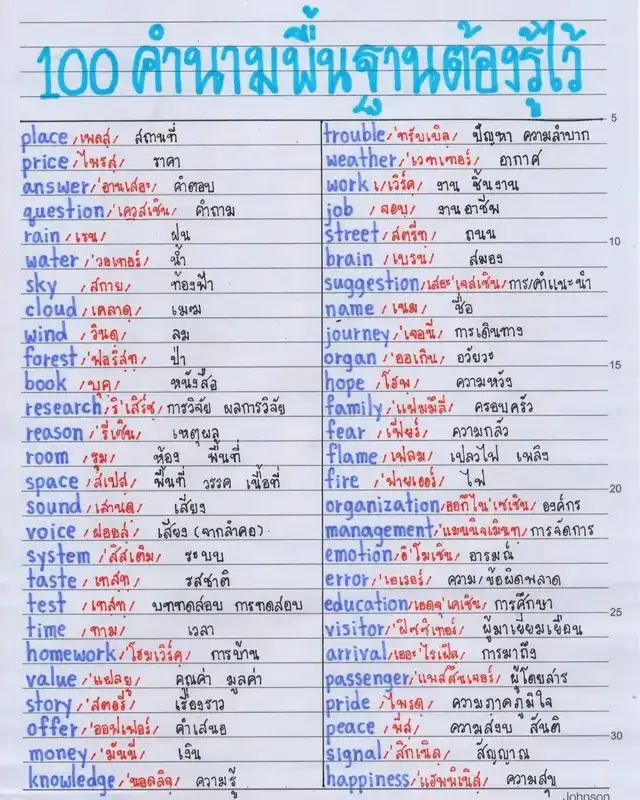 100 คำนามพื้นฐานต้องรู้ไว้
place /เพลสฺ/ สถานที่
price /ไพรสฺ/ ราคา
answer /'อานเสอะ/ คำตอบ
question /'เควสเชิน/ คำถาม
rain /เรน/ ฝน
water /'วอเทอร์/ น้ำ
sky /สกาย/ ท้องฟ้า
cloud /คลาวดฺ/ เมฆ
wind /วินดฺ/ ลม
forest /'ฟอริสทฺ/ ป่า
book /บุคฺ/ หนังสือ
research /ริ'เสิร์ช/ การวิจัย ผลการวิจัย
reason /'รีเซิน/ เหตุผล
room /รูม/ ห้อง พื้นที่
space /สเปส/ พื้นที่ วรรค เนื้อที่
sound /เสานดฺ/ เสียง
voice /ฝอยสฺ/ เสียง (จากลำคอ)
system /'สิสเติม/ ระบบ
taste /เทสทฺ/ รสชาติ
test /เทสทฺ/ บททดสอบ การทดสอบ
time /ทาม/ เวลา
homework /'โฮมเวิร์คฺ/ การบ้าน
value /'แฝลยู/ คุณค่า มูลค่า
story /'สตอรี่/ เรื่องราว
offer /'ออฟเฟอร์/ คำเสนอ
money /'มันนี่/ เงิน
knowledge /'นอลลิจฺ/ ความรู้
trouble /'ทรับเบิล/ ปัญหา ความลำบาก
weather /'เวทเทอร์/ อากาศ
work /เวิร์ค/ งาน ชิ้นงาน
job /จอบฺ/ งานอาชีพ
street /สตรีท/ ถนน
brain /เบรน/ สมอง
suggestion /เสอะ'เจสเชิน/ การ/คำแนะนำ
name /เนม/ ชื่อ
journey /'เจอนี่/ การเดินทาง
organ /'ออเกิน/ อวัยวะ
hope /โฮพ/ ความหวัง
family /'แฟมมิลี่/ ครอบครัว
fear /เฟียร์/ ความกลัว
flame /เฟลม/ เปลวไฟ เพลิง
fire /'ฟายเออร์/ ไฟ
organization /ออกึไน'เซเชิน/ องค์กร
management /'แมนนิจเมินท/ การจัดการ
emotion /อิ'โมเชิน/ อารมณ์
error /'เอเรอร์/ ความ/ข้อผิดพลาด
education /เอดจุ'เคเชิน/ การศึกษา
visitor /'ฝิซซิเทอร์/ ผู้มาเยี่ยมเยือน
arrival /เออะ'ไรเฝิล/ การมาถึง
passenger /'แพสสินเจอร์/ ผู้โดยสาร
pride /ไพรดฺ/ ความภาคภูมิใจ
peace /พีสฺ/ ความสงบ สันติ
signal /'สิกเนิล/ สัญญาณ
happiness /'แฮพพิเนิสฺ/ ความสุข
5
10
15
20
25
30
Johnson